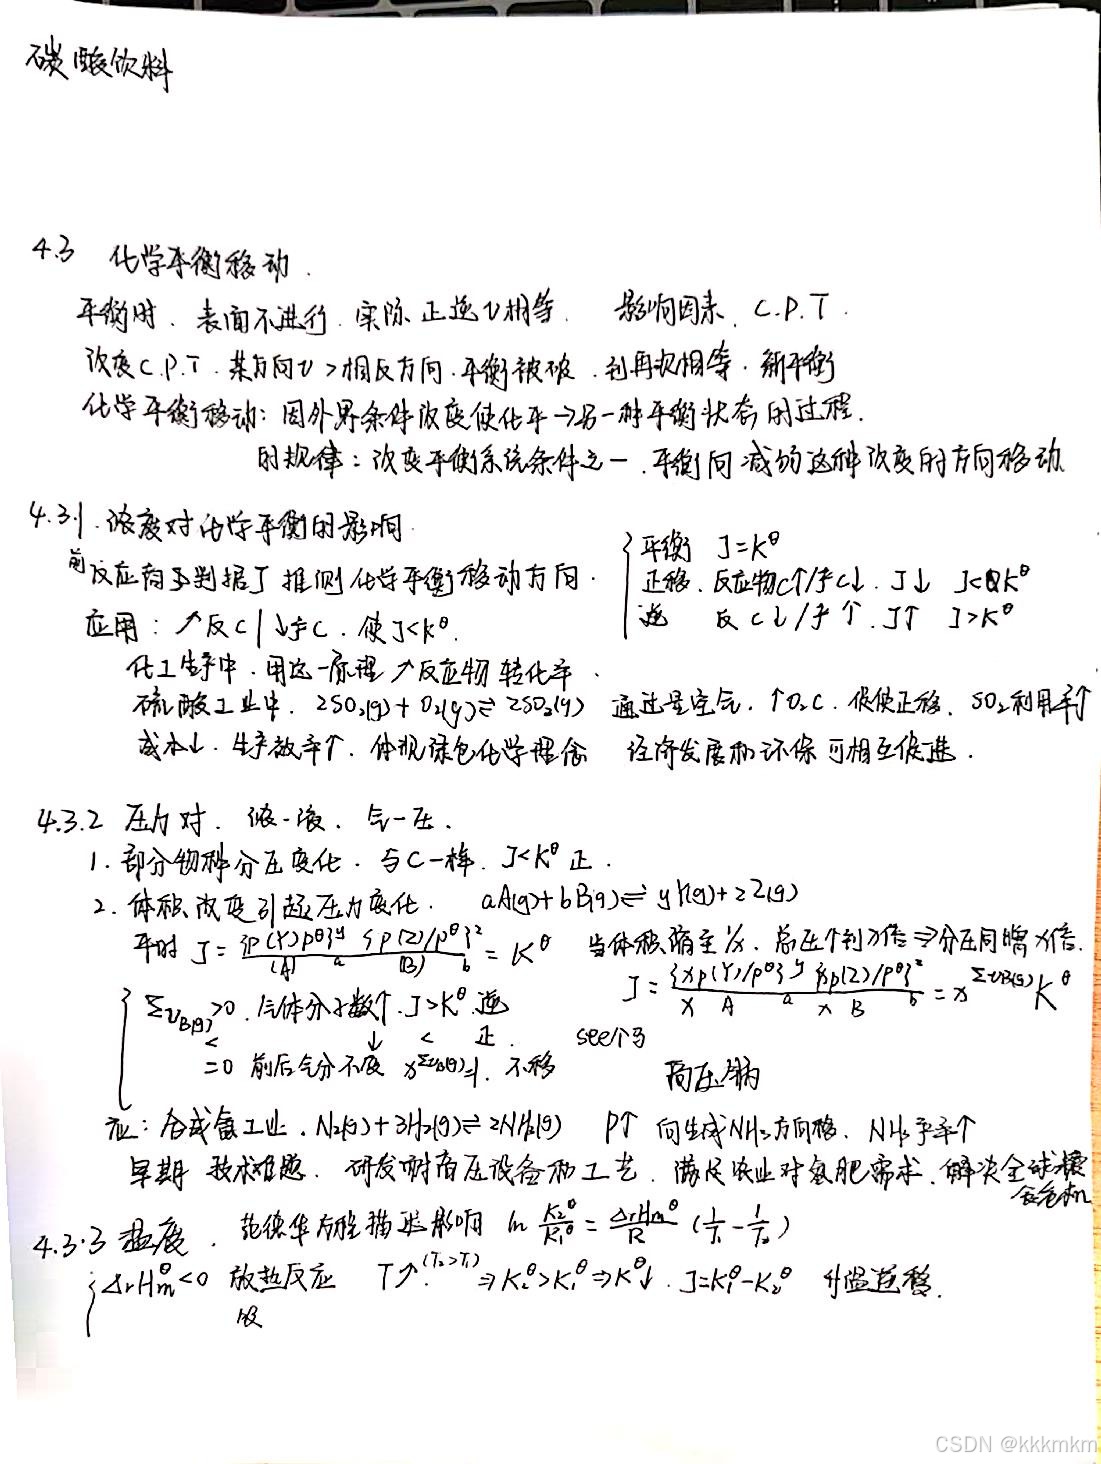 碳酸饮料
4.3 化学平衡移动.
平衡时. 表面不进行. 实际 正逆v相等. 影响因素. C.P.T.
改变C.P.T. 某方向v>相反方向. 平衡被破. 到再次相等. 新平衡
化学平衡移动: 因外界条件改变使化平→另一种平衡状态的过程.
的规律: 改变平衡系统条件之一. 平衡向减弱这种改变的方向移动
4.3.1. 浓度对化学平衡的影响.
平衡 J=Kθ
前 反应商J判据J 推测化学平衡移动方向.
正移. 反应物C↑/产C↓. J↓ J<Kθ
应用: ↗反C|↓产C. 使J<Kθ.
逆 反C↓/产↑. J↑ J>Kθ
化工生产中. 用这一原理↗反应物 转化率.
硫酸工业中. 2SO₂(g)+O₂(g)⇌2SO₃(g) 通过量空气. ↑O₂C. 促使正移. SO₂利用率↑
成本↓. 生产效率↑. 体现绿色化学理念 经济发展和环保可相互促进.
4.3.2 压力对. 浓-液. 气-压.
1. 部分物种分压变化. 与C一样. J<Kθ 正.
2. 体积改变引起压力变化. aA(g)+bB(g)⇌yY(g)+zZ(g)
平时 J={p(Y)pθ}y {p(Z)/pθ}z / (A) a (B) b = Kθ 当体积缩至1/x. 总压个到x倍⇒分压同增x倍.
J={xp(Y)/pθ}y {xp(Z)/pθ}z / x A a x B b = xΣvB(g) Kθ
ΣvB(g)>0. 气体分子数↑. J>Kθ 逆
< ↓ < 正. see个3
=0 前后气分不变 xΣvB(g)=1. 不移
高压锅
应: 合成氨工业. N₂(g)+3H₂(g)⇌2NH₃(g) P↑ 向生成NH₃方向移. NH₃产率↑
早期 技术难题. 研发耐高压设备和工艺. 满足农业对氮肥需求. 解决全球粮
食危机
4.3.3 温度. 范德华方程描述影响 ln K₂θ/K₁θ = ΔrHmθ/R (1/T₁ - 1/T₂)
ΔrHmθ<0 放热反应 T↗(T₂>T₁) ⇒K₂θ>K₁θ⇒Kθ↓. J=K₁θ-K₂θ 升温逆移.
吸
CSDN @kkkmkm